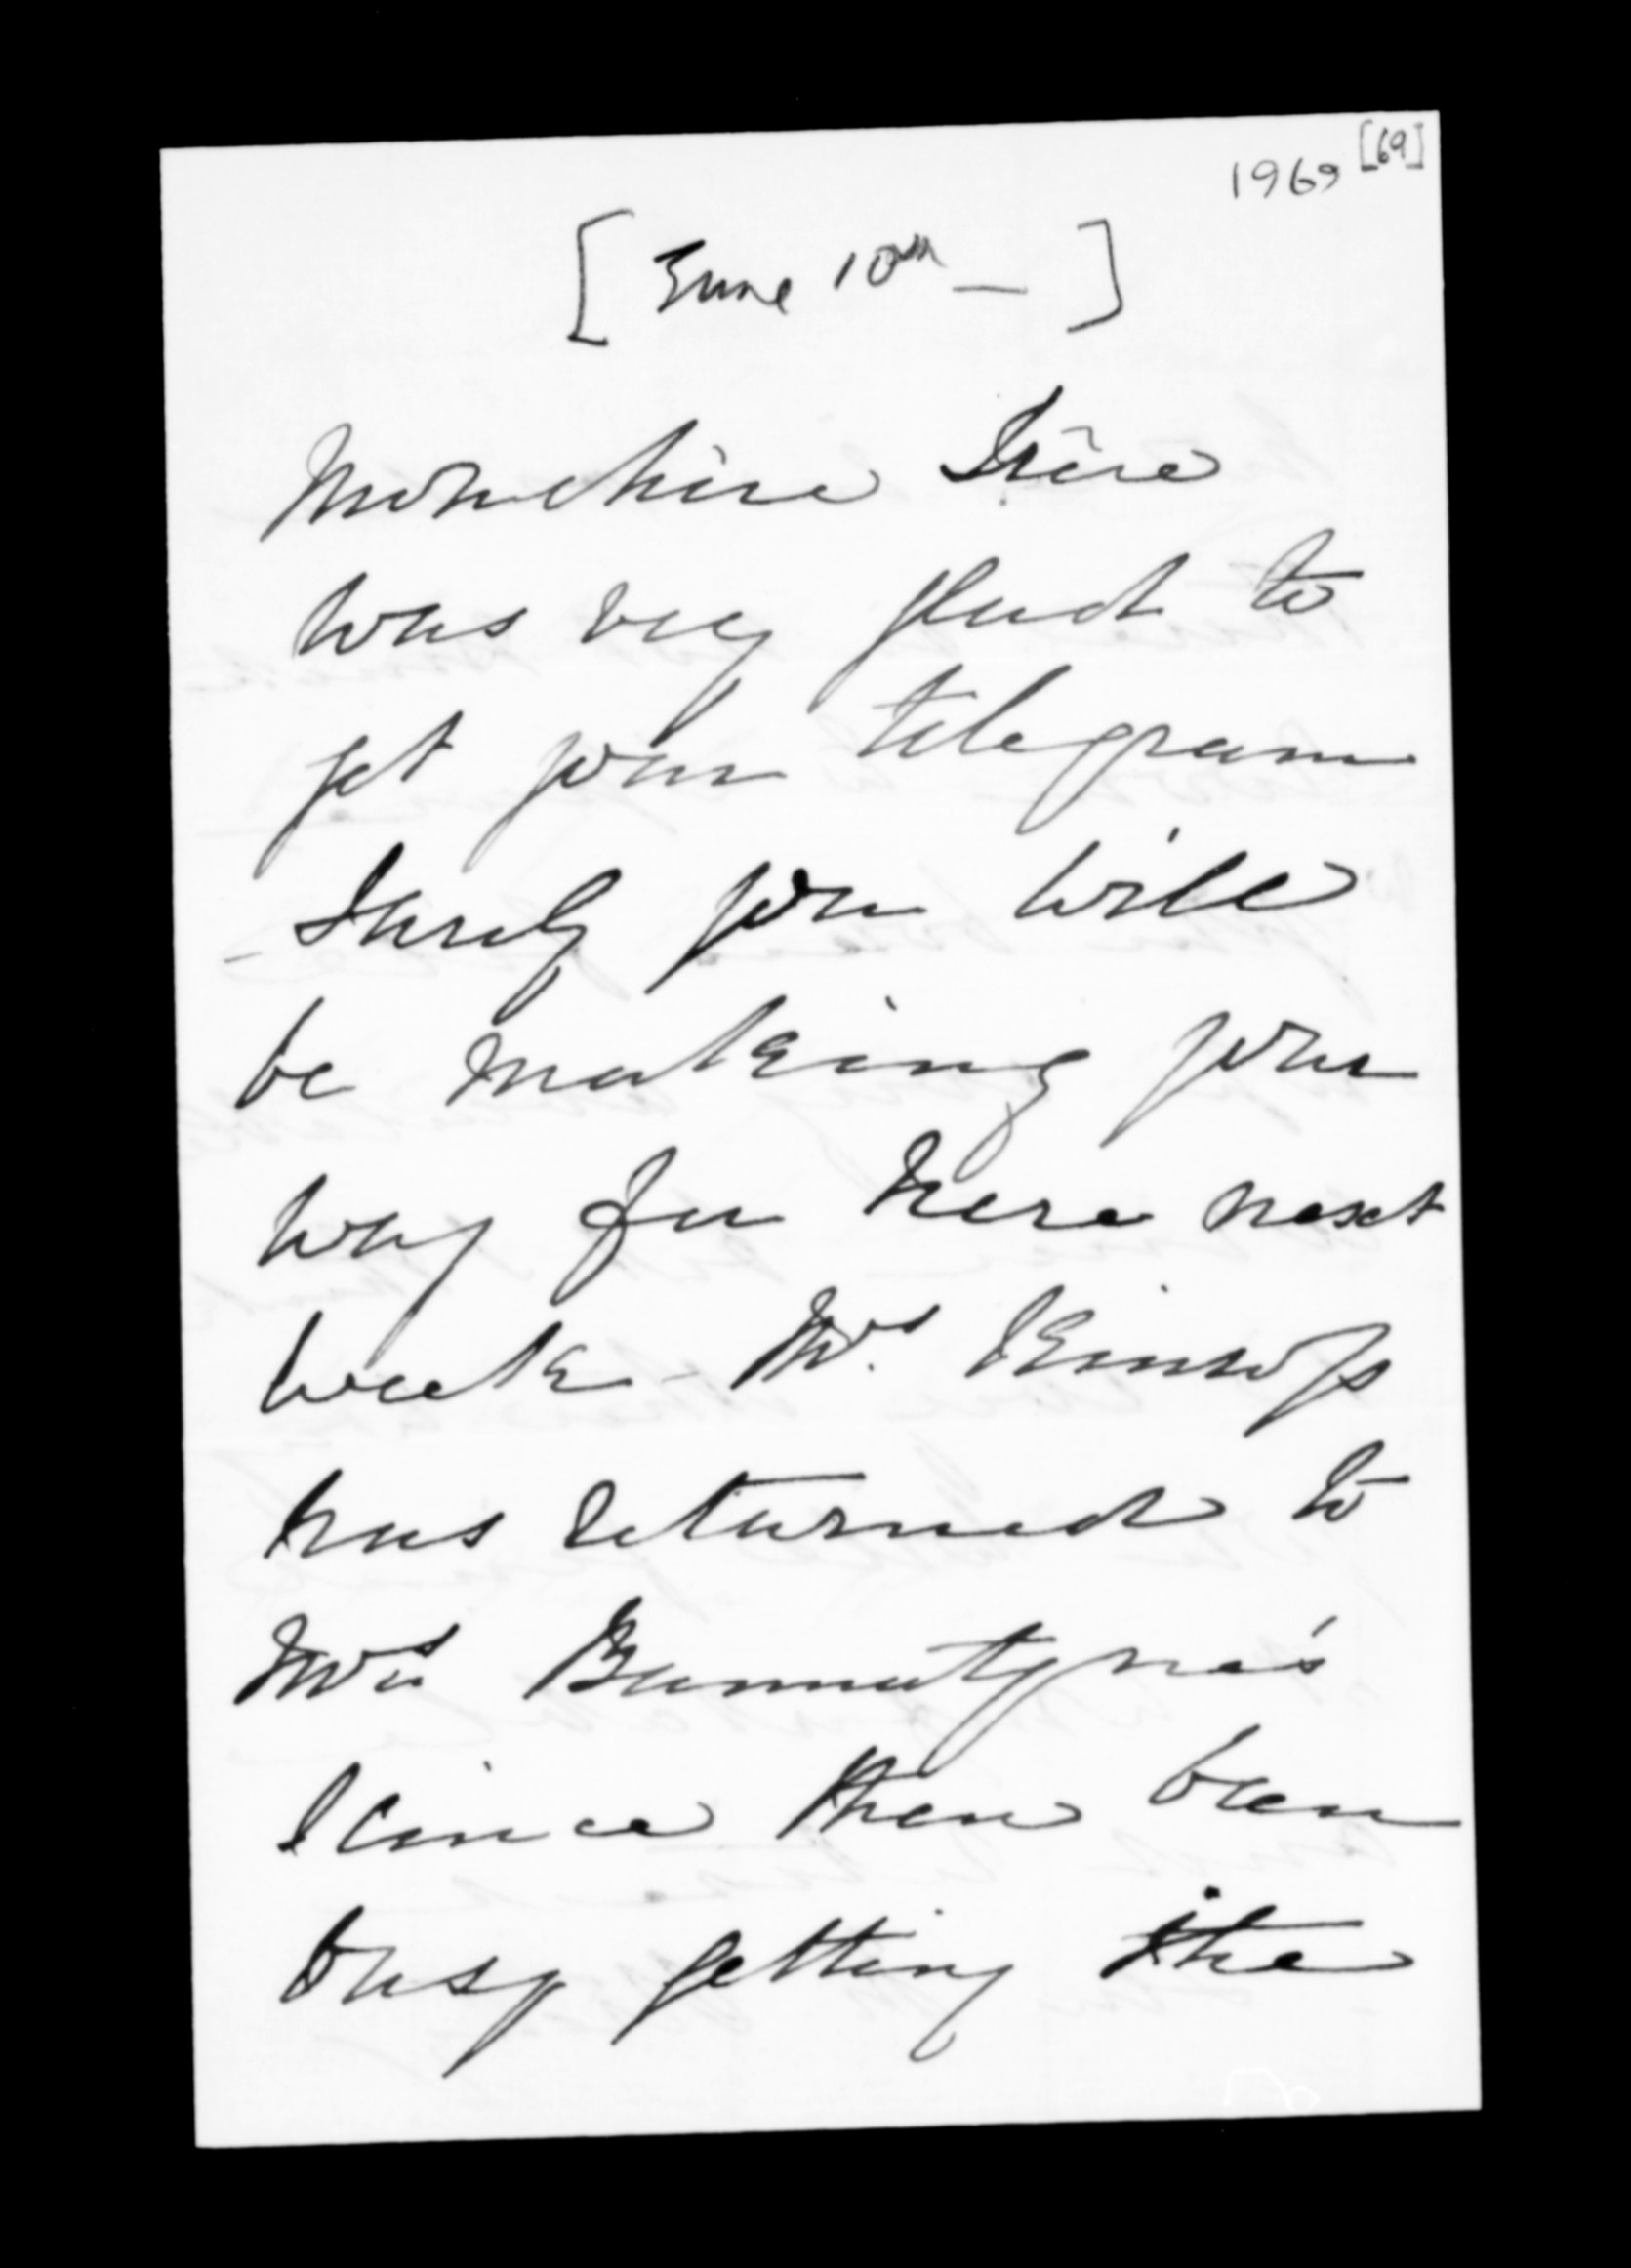 1969 [69]
[June 10th — ]
Mon chère Frère
was very glad to
get your telegram
- Surely you will
be making your
way for here next
week - Mrs Kinross
has returned to
Mrs Bannatyne's
since then been
busy getting the